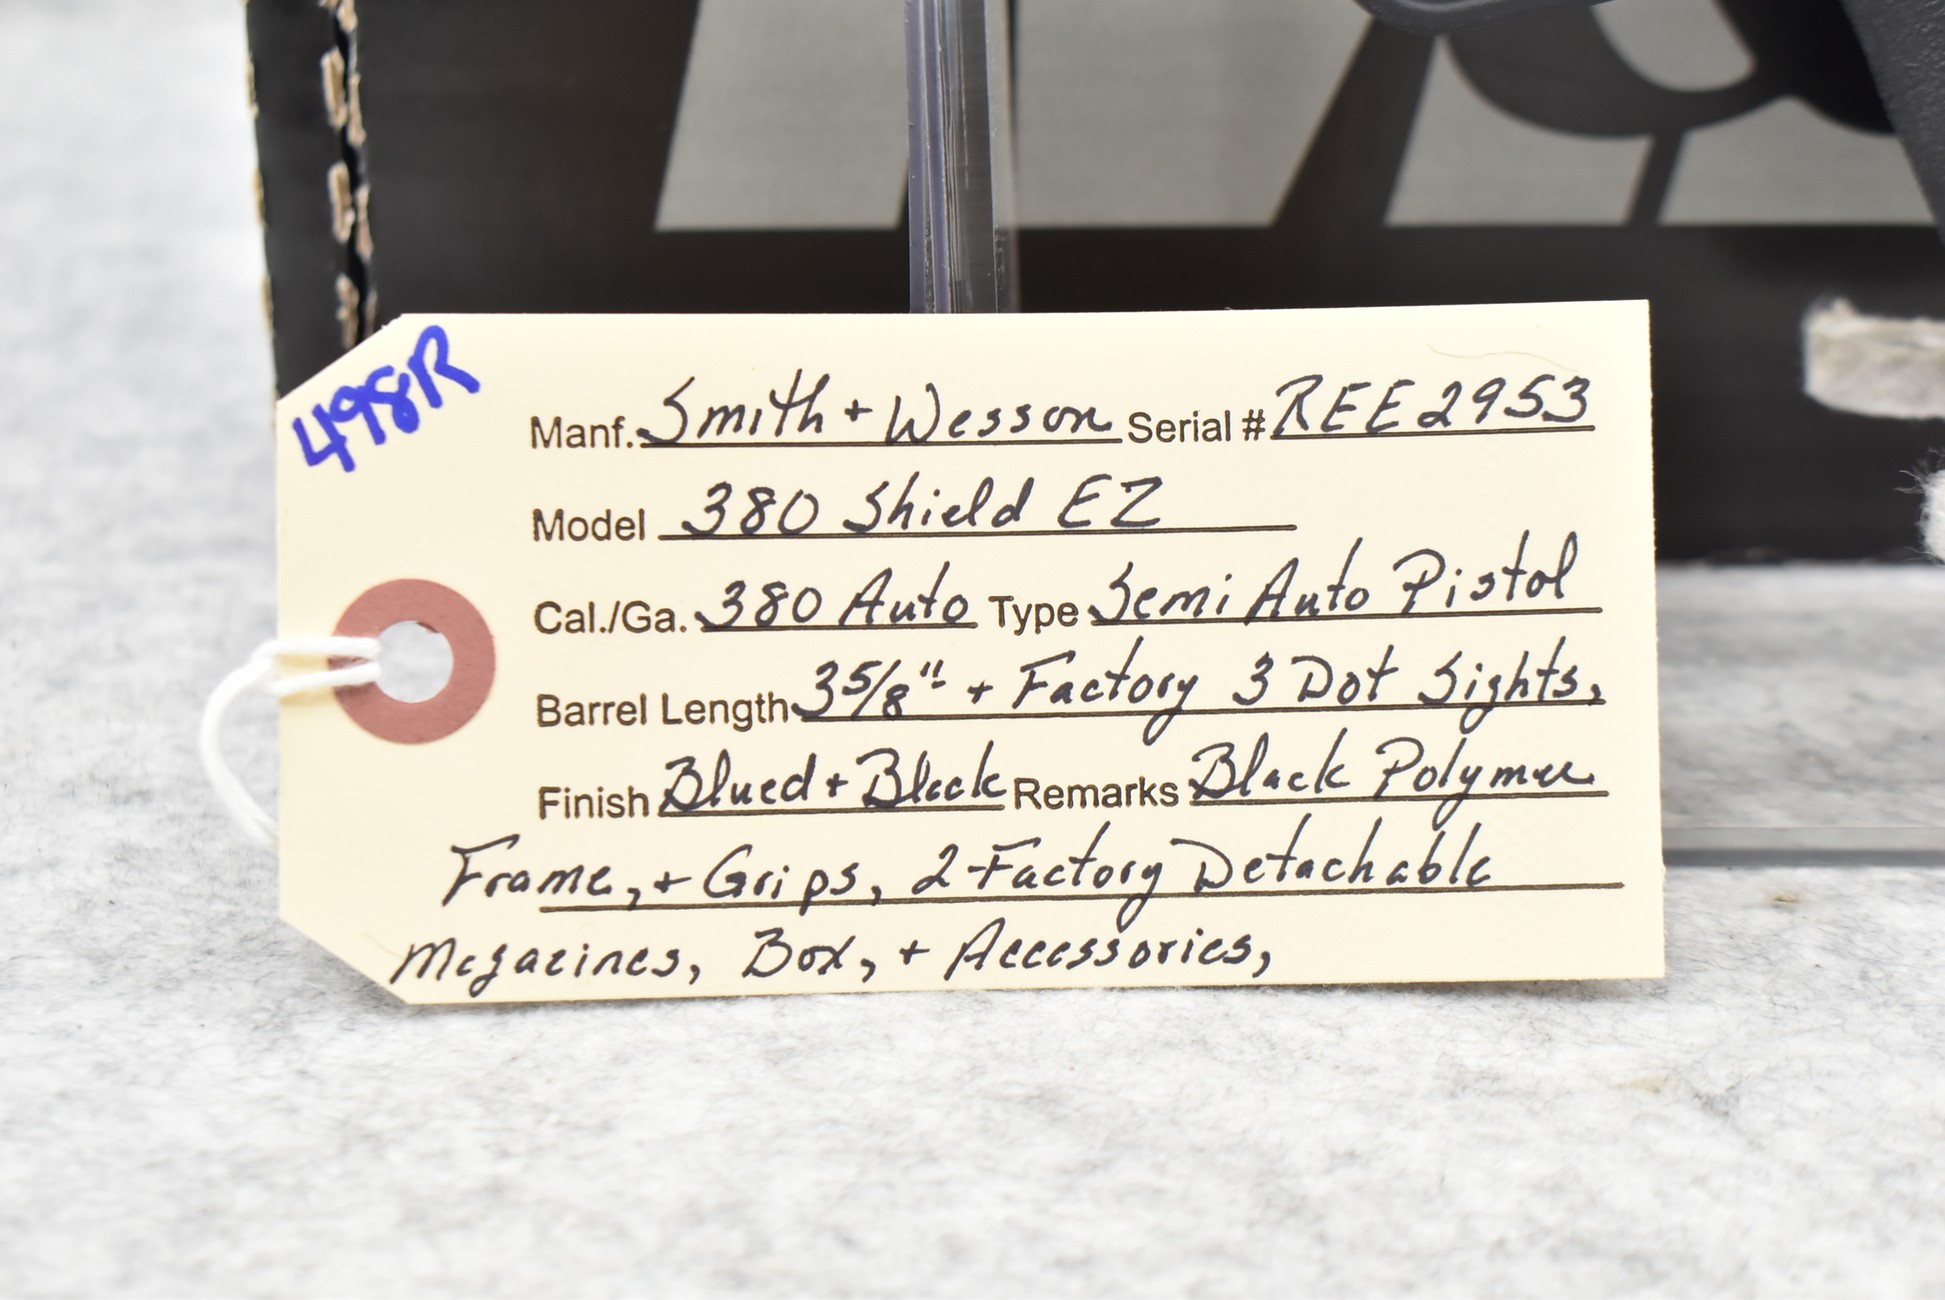 498R
Manf. Smith + Wesson Serial # REE2953
Model 380 Shield EZ
Cal./Ga. 380 Auto Type Semi Auto Pistol
Barrel Length 3 5/8" + Factory 3 Dot Sights,
Finish Blued + Black Remarks Black Polymer
Frame, + Grips, 2-Factory Detachable
Magazines, Box, + Accessories,